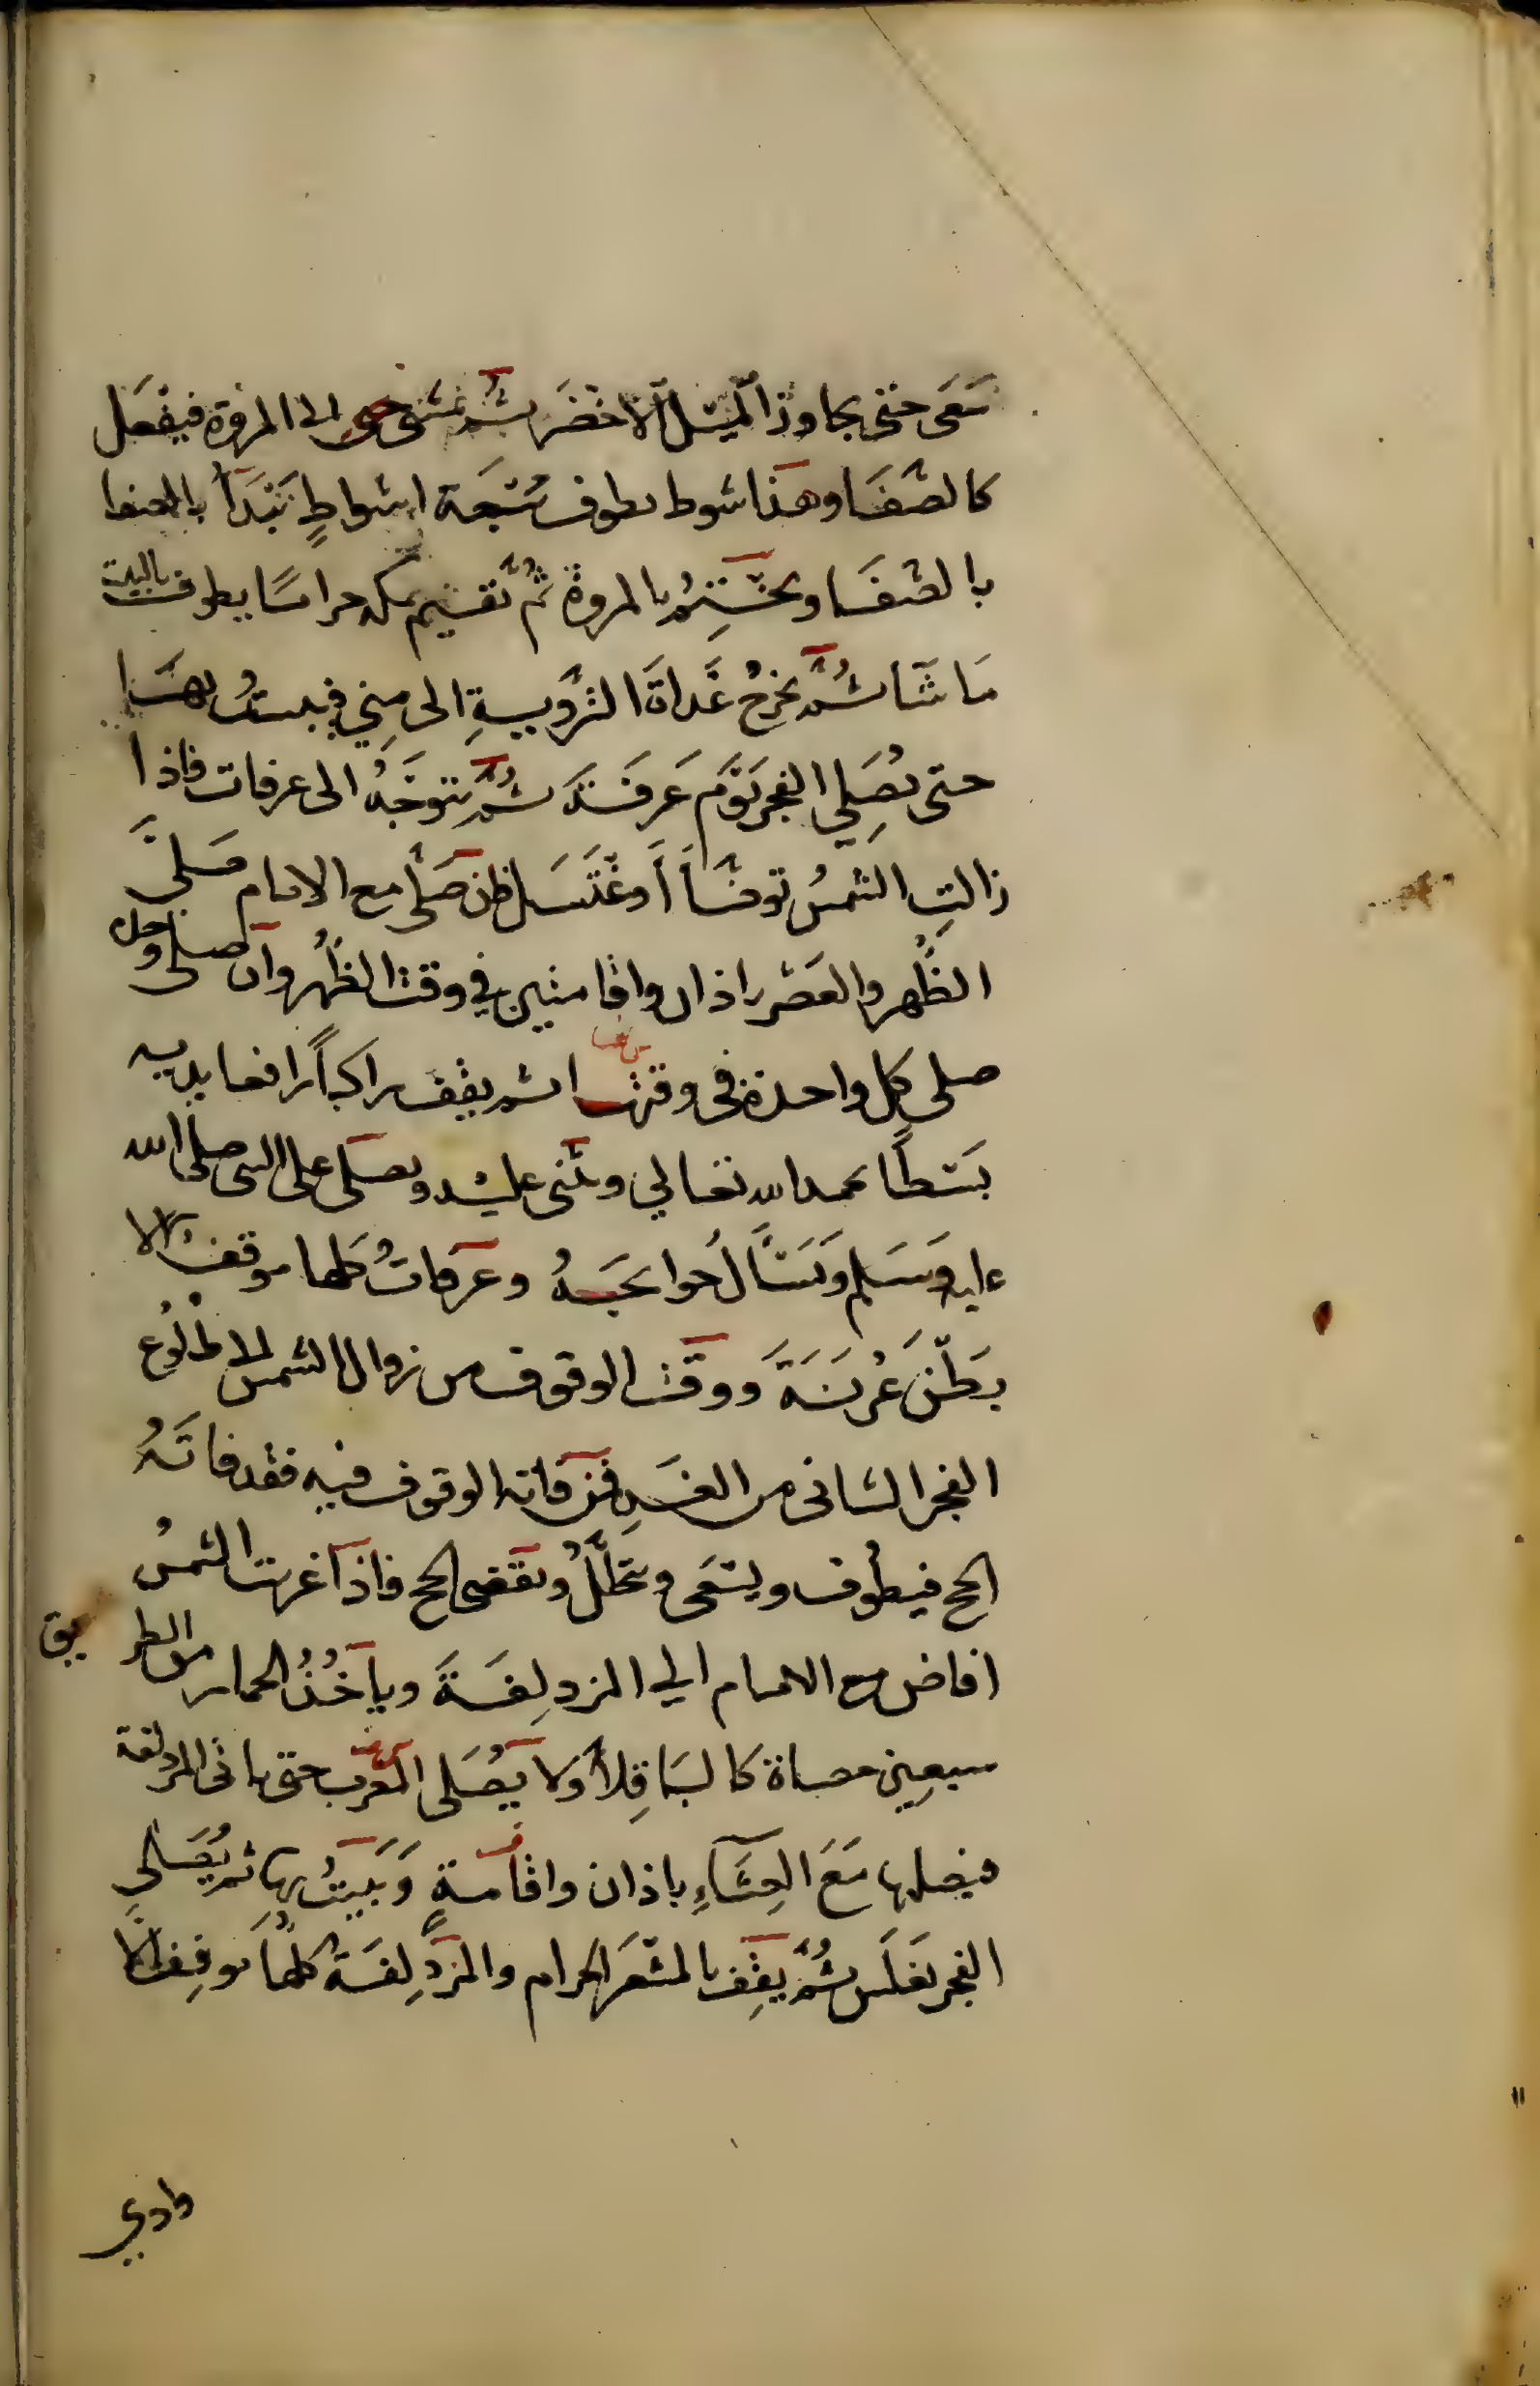 سَعَى حتى يجاوز الميل الاخضر ثم يمشى حتى الى المروة فيفعل
كالصفا وهذا شوط يطوف سبعة اشواطٍ يَبْتَدأ بالصفا
بالصفا ويختم بالمروة ثمّ يقيم بمكه حراما يطوف بالبيت
مَا شَا ثُمَّ يخرجُ غَداةَ التروِيةِ الى مِنى فيبيتُ بهَا
حتى يُصَلِي الفجر يَوْم عَرفَة ثُمّ يتوجّهُ الى عرفات فاذا
زالتِ الشمسُ توضَّأَ أَو غْتَسَل فان صَلى مع الامام صَلىَّ
الظُهر والعَصْر باذان واقامتين في وقت الظُهر وان صلى وحده
صلى كل واحدة فى وقتها ثم يقف راكباً رافعا يديه
بَسْطًا يحمد الله تعالي ويثنى عليه ويصلى على النبى صلى الله
عليه وَسَلم وَيَسْأَلُ حوايجَهُ وعرفاتُ كلها موقف الا
بَطْنَ عُرنَةَ ووقت الوقوف من زوال الشمس الى طلُوع
الفجر الثانى من الغَدِ فمن فاته الوقوف فيه فقد فاتَهُ
الحج فيطُوف ويسْعَى ويتحَلّلُ ويقضى الحج فاذا غربت الشمسُ
افاض مع الامام الي المزدلِفَةَ وياخُذُ الجمار من الطريق
سبعِين حصاة كالبَاقِلأ ولا يُصَلى المغرب حتى ياتى المزدلفة
فيصليها مَعَ العِشَاءِ باذان واقامةٍ وَيَبيتُ بها ثم يُصَلي
الفجر بغَلَسٍ ثُمَّ يقِف بالمشْعَر الحرام والمزْدلِفَةُ كلُها موقِف الا
وادي